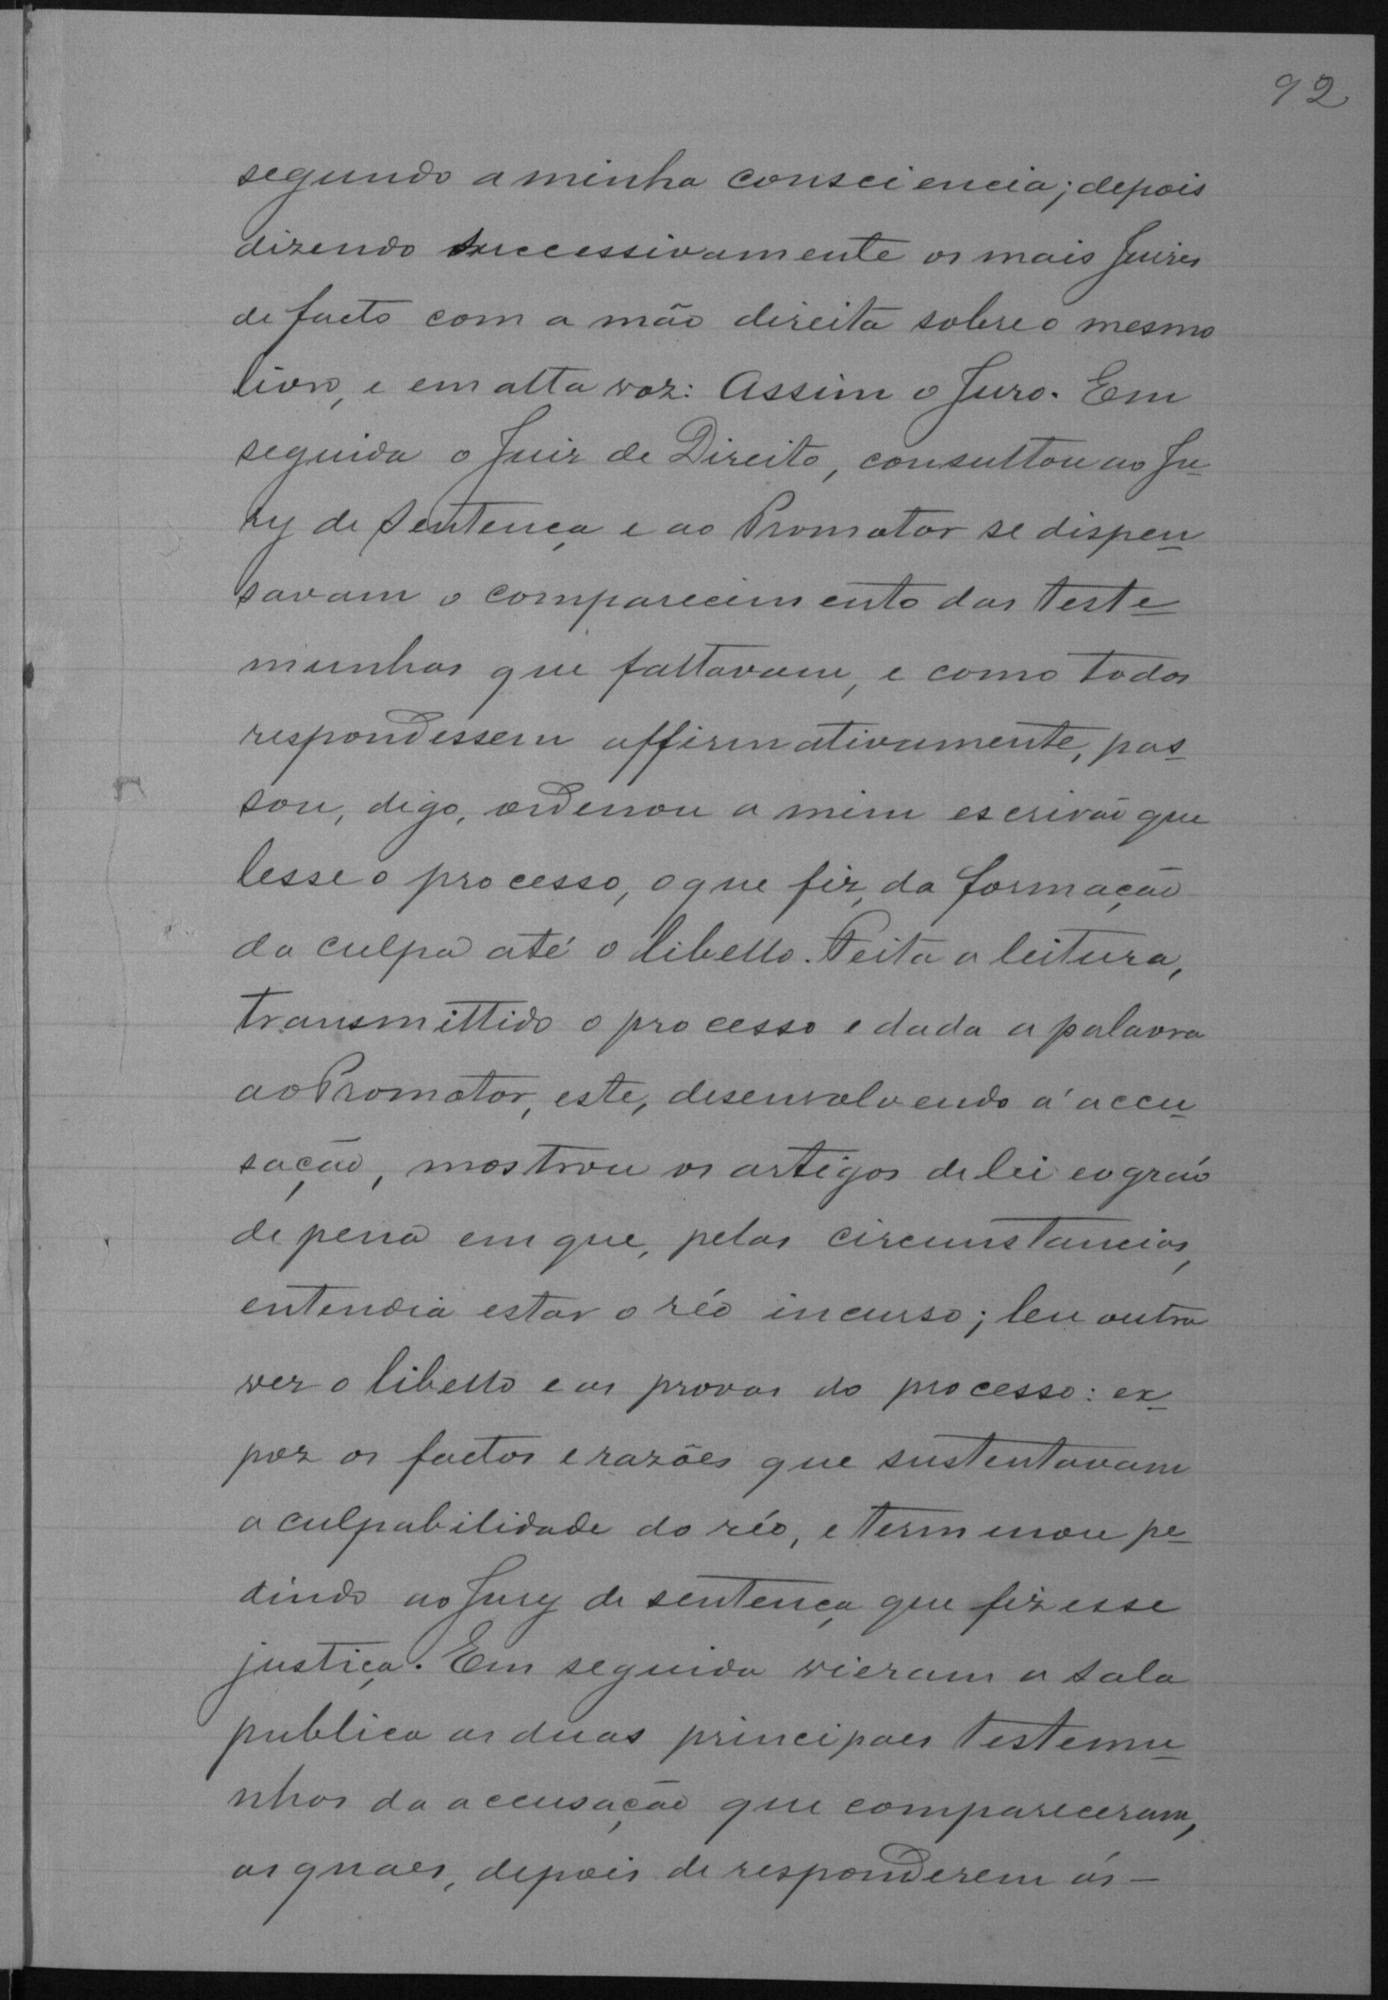 92
segundo a minha consciencia; depois
dizendo successivamente os mais Juizes
de facto com a mão direita sobre o mesmo
livro, e em alta voz: Assim o Juro. Em
seguida o Juiz de Direito, consultou ao Ju-
ry de Sentença e ao Promotor se dispen-
savam o comparecimento das teste-
munhas que faltavam, e como todos
respondessem affirmativamente, pas-
sou, digo, ordenou a mim escrivão que
lesse o processo, o que fiz, da formação
da culpa até o libello. Feita a leitura,
transmittido o processo e dada a palavra
ao Promotor, este, desenvolvendo á accu-
sação, mostrou os artigos de lei e o gráo
de pena em que, pelas circumstancias,
entendia estar o réo incurso; leu outra
vez o libello e as provas do processo: ex-
poz os factos e razões que sustentavam
a culpabilidade do réo, e terminou pe-
dindo ao Jury de sentença que fizesse
justiça. Em seguida vieram a sala
publica as duas principaes testemu-
nhas da accusação que compareceram,
as quaes, depois de responderem ás —